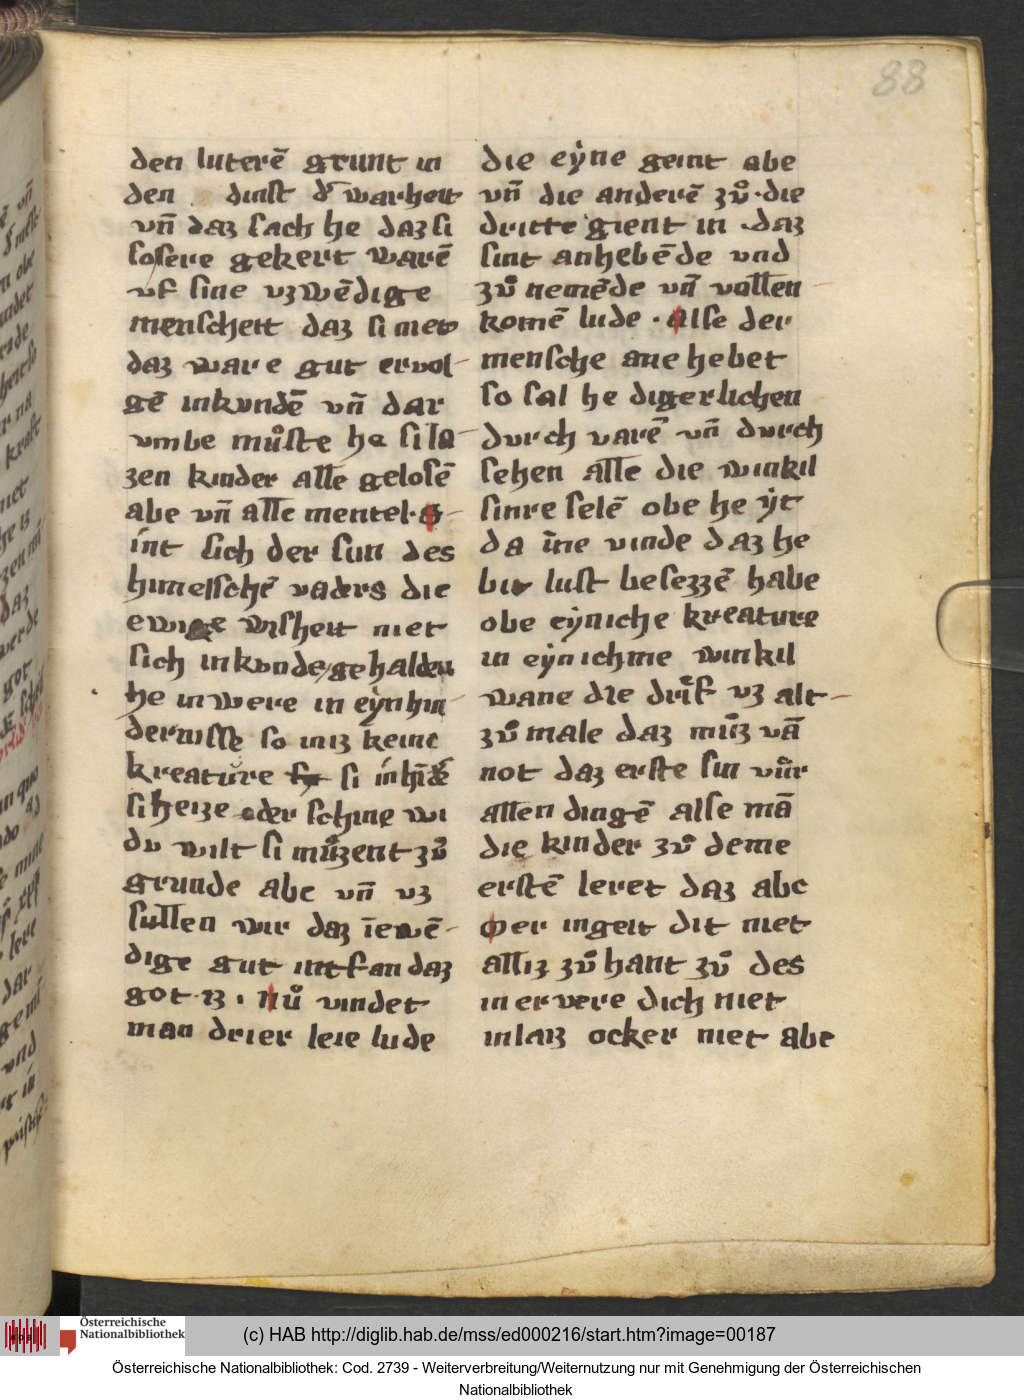 88
den luterē grunt in
den dinst d̕ warheit
vn̄ daz sach he daz si
sosere gekert warē
vf sine vzwēdige
menscheit daz si niet
daz ware gut ervol-
gē inkundē vn̄ dar
vmbe muͦste he si la-
zen kinder alle gelosē
abe vn̄ alle mentel. a-
int sich der sun des
himelschē vaders die
ewige wisheit niet
sich inkunde gehalden
he inwere in eyn hin-
dernisse so iniz keine
kreature si in hī
si heize oder schine wi
du wilt si muͦzent zuͦ
grunde abe vn̄ vz
sullen wir daz īewē-
dige gut intfan daz
got iz . nuͦ vindet
man drier leie lude
die eyne geint abe
vn̄ die anderē zuͦ . die
dritte gient in . daz
sint anhebēde vnd
zuͦ nemēde vn̄ vollen-
komē lude . alse der
mensche ane hebet
so sal he digerlichen
durch varē vn̄ durch
sehen alle die winkil
sinre selē obe he yt
da īne vinde daz he
bit lust besezzē habe
obe eyniche kreature
in eynichme winkil
wane die drīf vz alt-
zuͦ male daz muͦz vā
not daz erste sin vuͦr
allen dingē alse mā
die kinder zuͦ deme
erstē leret daz abc
Der ingeit dit niet
alliz zuͦ hant zuͦ des
inervere dich niet
inlaiz ocker niet abe
Österreichische
Nationalbibliothek
(c) HAB http://diglib.hab.de/mss/ed000216/start.htm?image=00187
Österreichische Nationalbibliothek: Cod. 2739 - Weiterverbreitung/Weiternutzung nur mit Genehmigung der Österreichischen
Nationalbibliothek